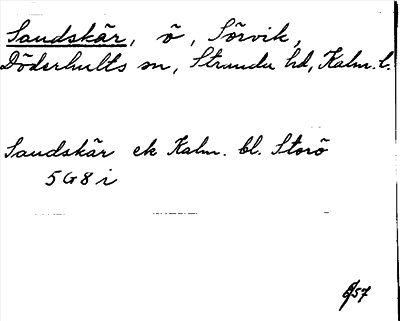 Sandskär, ö, Sörvik,
Döderhults sn, Stranda hd, Kalm. l.
Sandskär ek Kalm. bl. Storö
5G8i